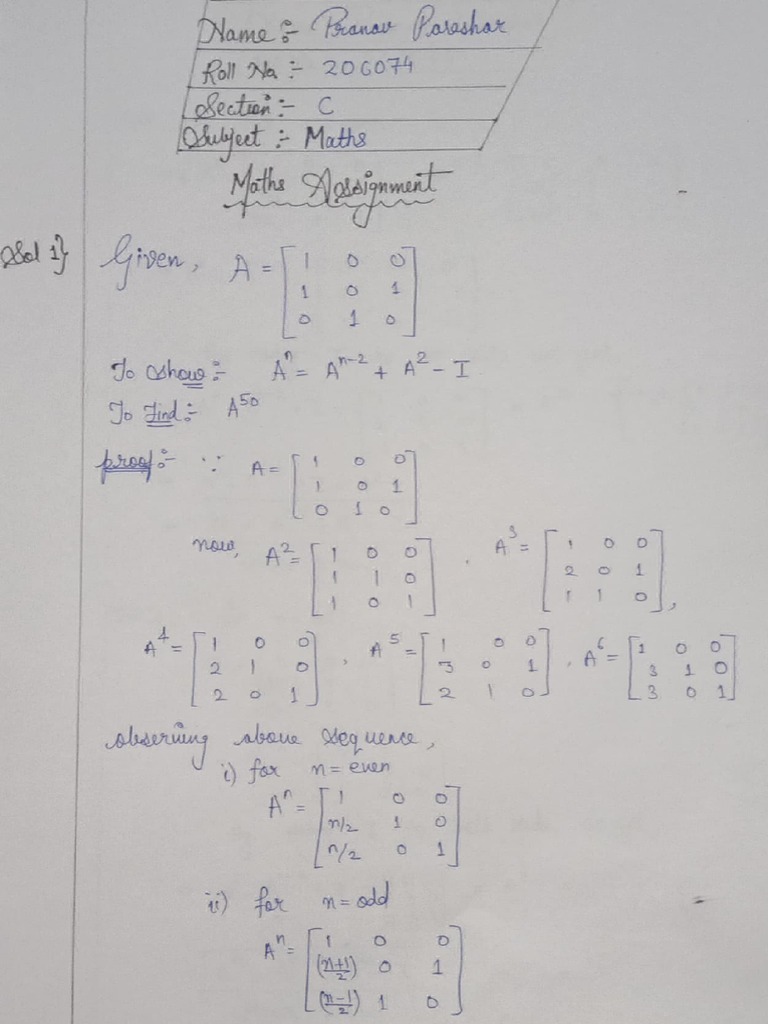 Name :- Pranav Parashar
Roll No :- 206074
Section :- C
Subject :- Maths
Maths Assignment
Sol 1} Given, A = [1 0 0
1 0 1
0 1 0]
To show :- Aⁿ = Aⁿ⁻² + A² - I
To Find :- A⁵⁰
proof :- ∵ A = [1 0 0
1 0 1
0 1 0]
now, A² = [1 0 0
1 1 0
1 0 1] , A³ = [1 0 0
2 0 1
1 1 0] ,
A⁴ = [1 0 0
2 1 0
2 0 1] , A⁵ = [1 0 0
3 0 1
2 1 0] , A⁶ = [1 0 0
3 1 0
3 0 1]
observing above sequence,
i) for n = even
Aⁿ = [1 0 0
n/2 1 0
n/2 0 1]
ii) for n = odd
Aⁿ = [1 0 0
(n+1)/2 0 1
(n-1)/2 1 0]